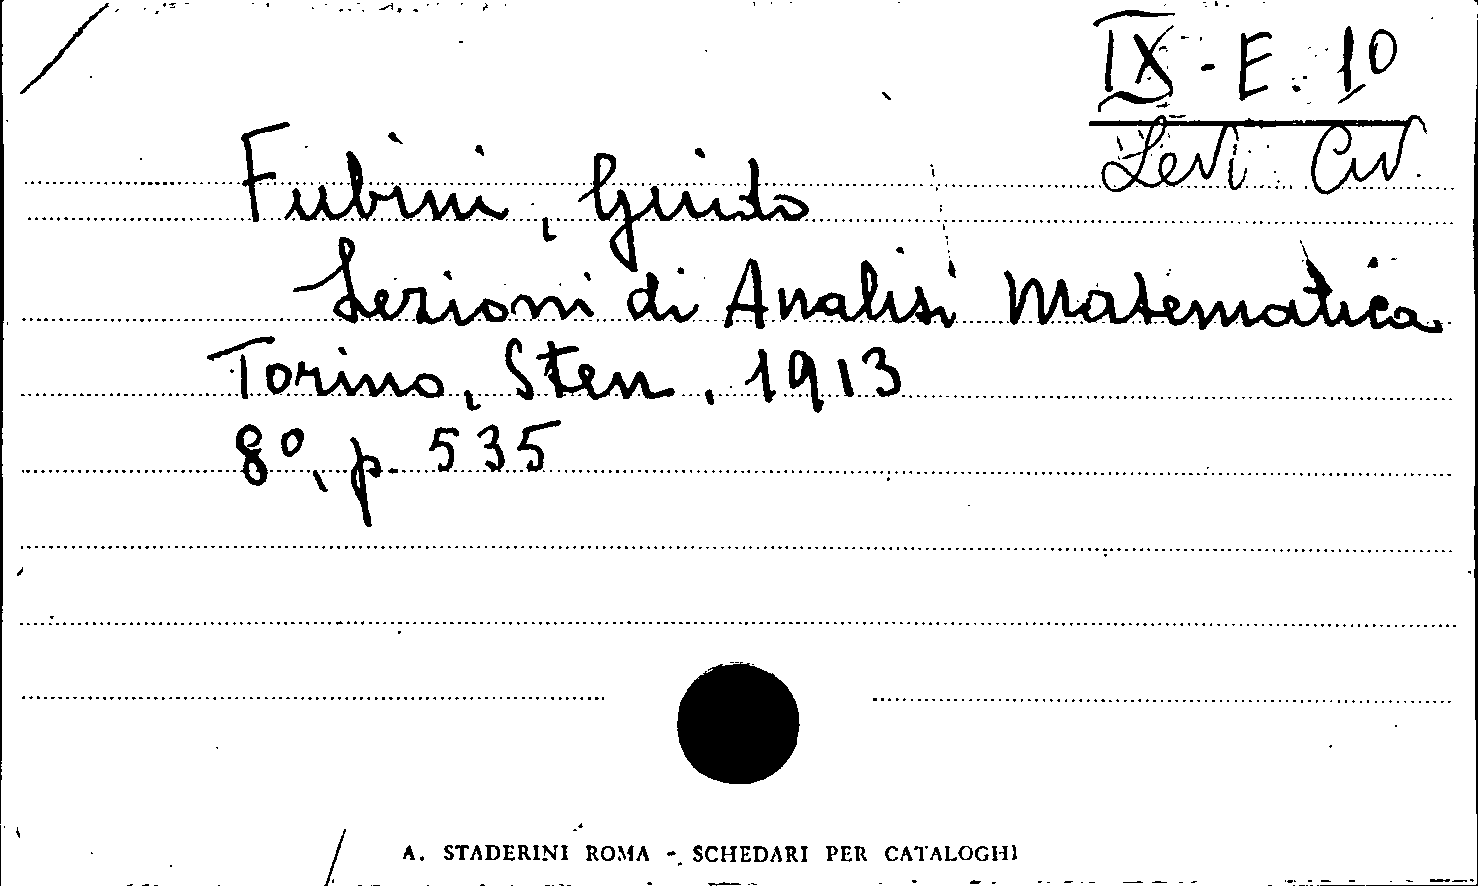 IX - E. 10
Levi Civ.
Fubini, Guido
Lezioni di Analisi Matematica
Torino, Sten, 1913
8º, p. 535
A. STADERINI ROMA - SCHEDARI PER CATALOGHI